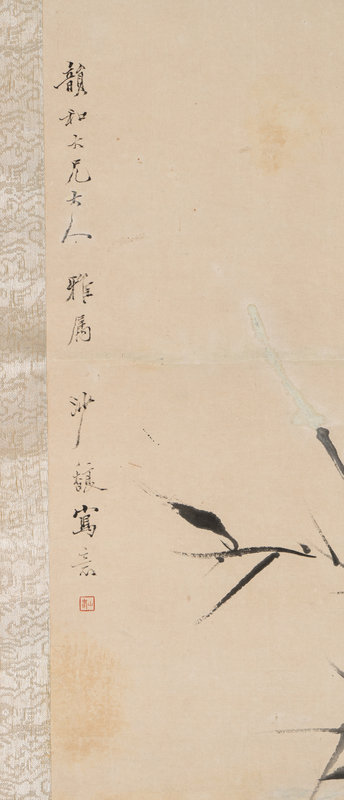 韻和大兄大人 雅属 沙馥寫意